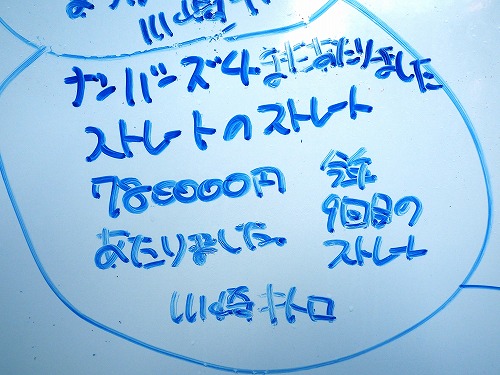 川崎
ナンバーズ4またあたりました
ストレートのストレート
780000円
今年
9回目の
あたりました。
ストレート
川崎キトロ